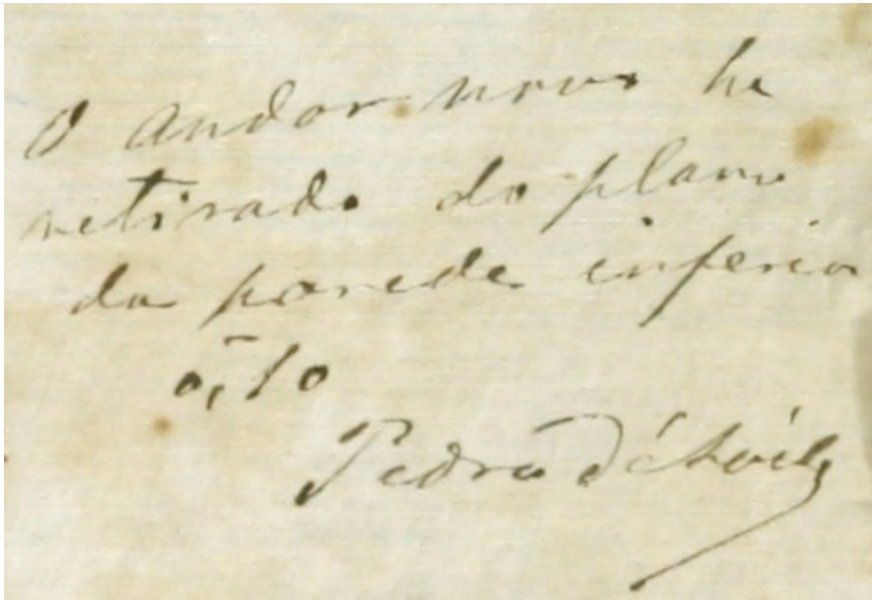 O Andar novo he
retirado do plano
da parede inferior
0,m10
Pedro d'Avila